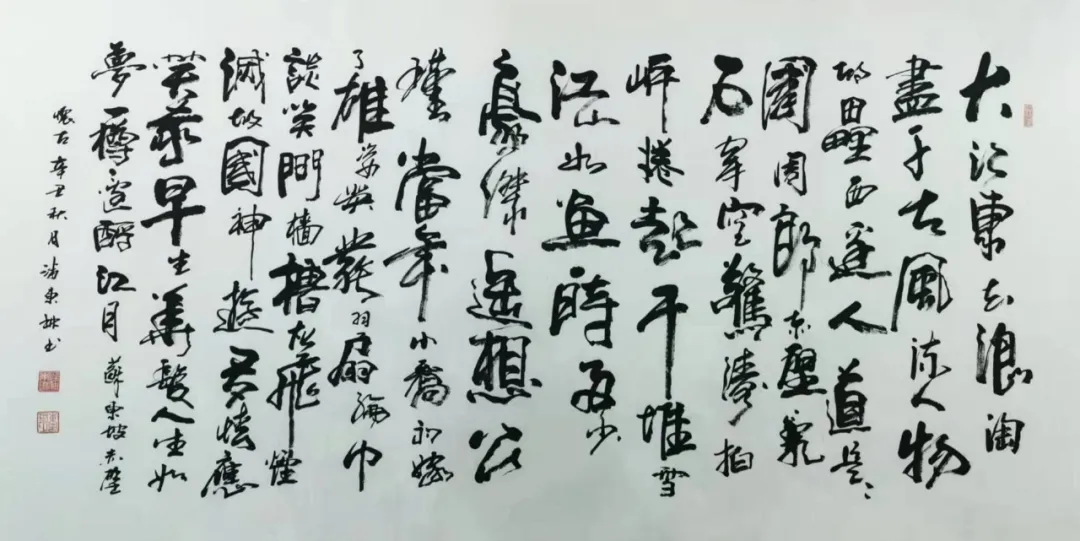 大江東去浪淘
盡千古風流人物
故壘西邊人道是三
國周郎赤壁亂
石穿空驚濤拍
岸捲起千堆雪
江山如畫時多少
豪傑遙想公
瑾當年小喬初嫁
了雄姿英發羽扇綸巾
談笑間檣櫓灰飛煙
滅故國神遊多情應
笑我早生華髮人生如
夢一樽還酹江月 蘇東坡赤壁
懷古 辛丑秋月 東 書